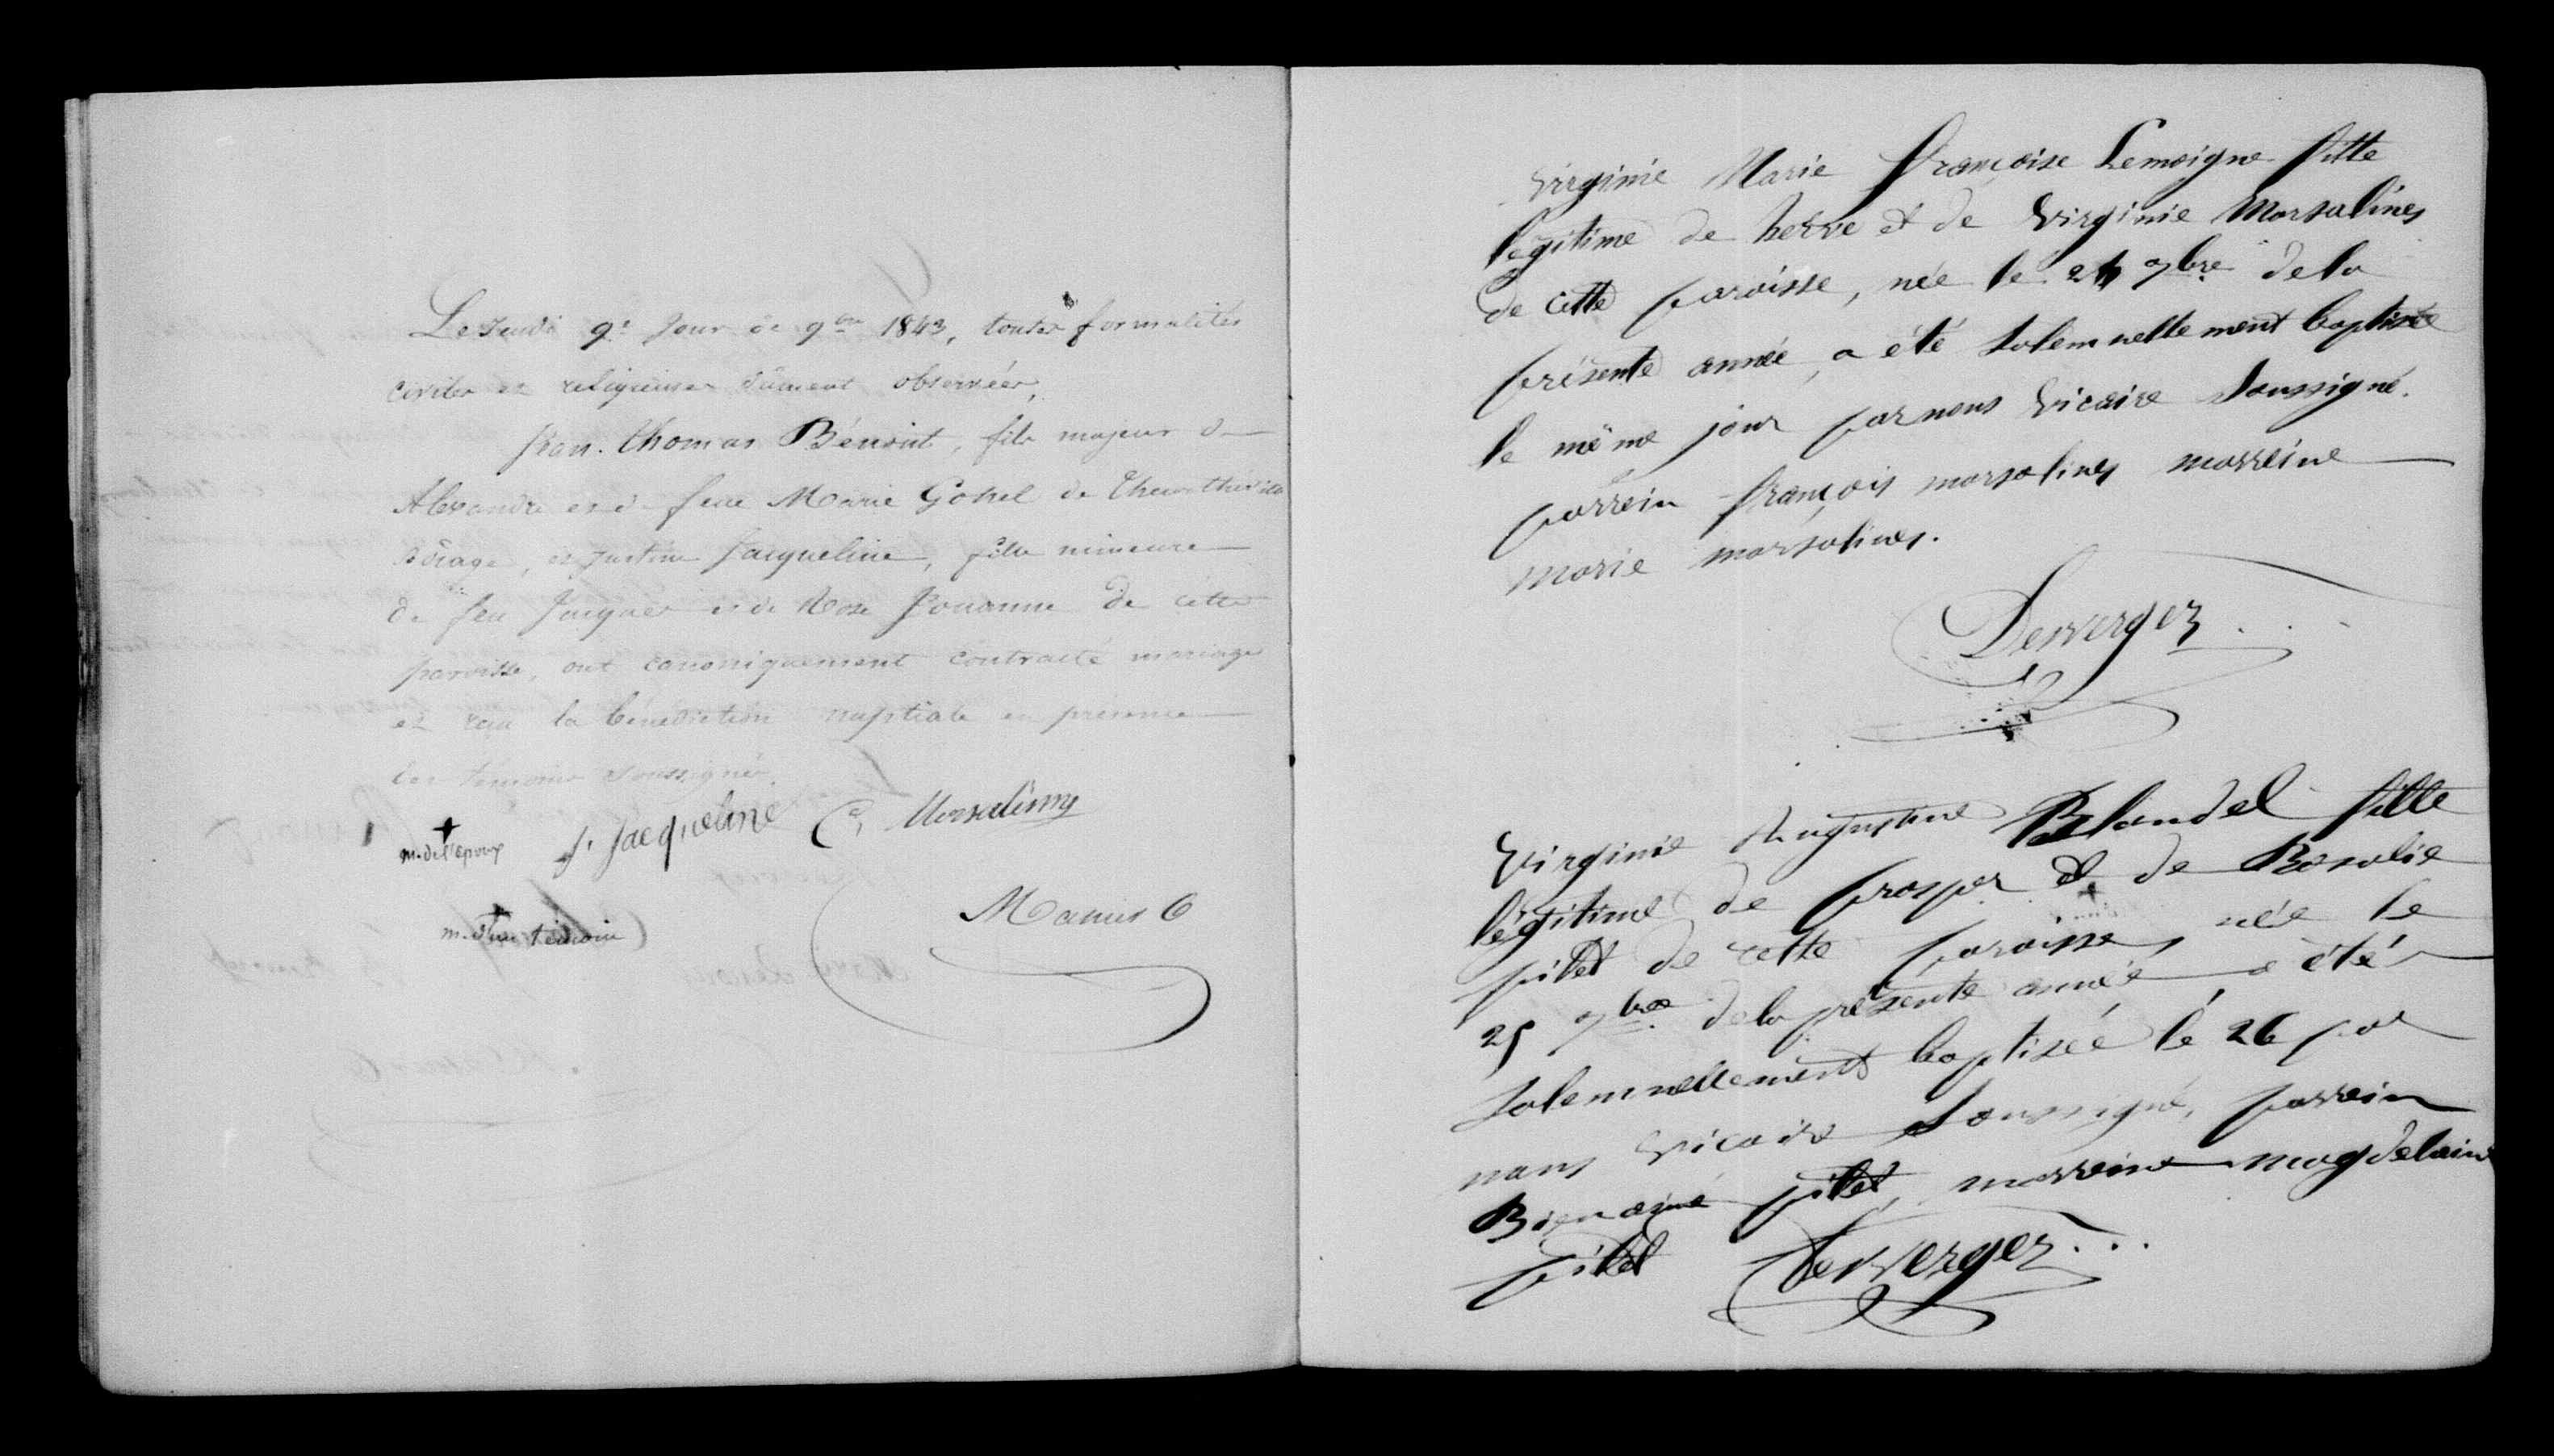 Le Jeudi 9e Jour de 9bre 1843, toutes formalités
civiles et religieuses dûment observées,
Jean. Thomas Bénoist, fils majeur de
Alexandre et de feue Marie Gohel de Theurthéville
Bocage, et Justine Jacqueline, fille mineure
de feu Jacques et de Rose Jouanne de cette
paroisse, ont canoniquement contracté mariage
et reçu la bénédiction nuptiale en présence
des temoins soussignés.
+
m. de l'époux
J. Jacqueline
+
m. d'un témoin
Virginie Marie françoise Lemoigne fille
légitime de herve et de Virginie Marsalines
de cette paroisse, née le 24 9bre de la
présente année, a été solemnellement baptisée
le même jour par nous vicaire soussigné.
parrein françois marsalines marreine
marie marsalines.
Desverger
Virginie Augustine Blondel fille
légitime de prosper et de Rosalie
pitet de cette paroisse, née le
25 9bre de la présente année a été
solemnellement baptisée le 26 par
nous vicaire soussigné, parrein
Bienaimé pitet, marreine magdelaine
pitet Desverger